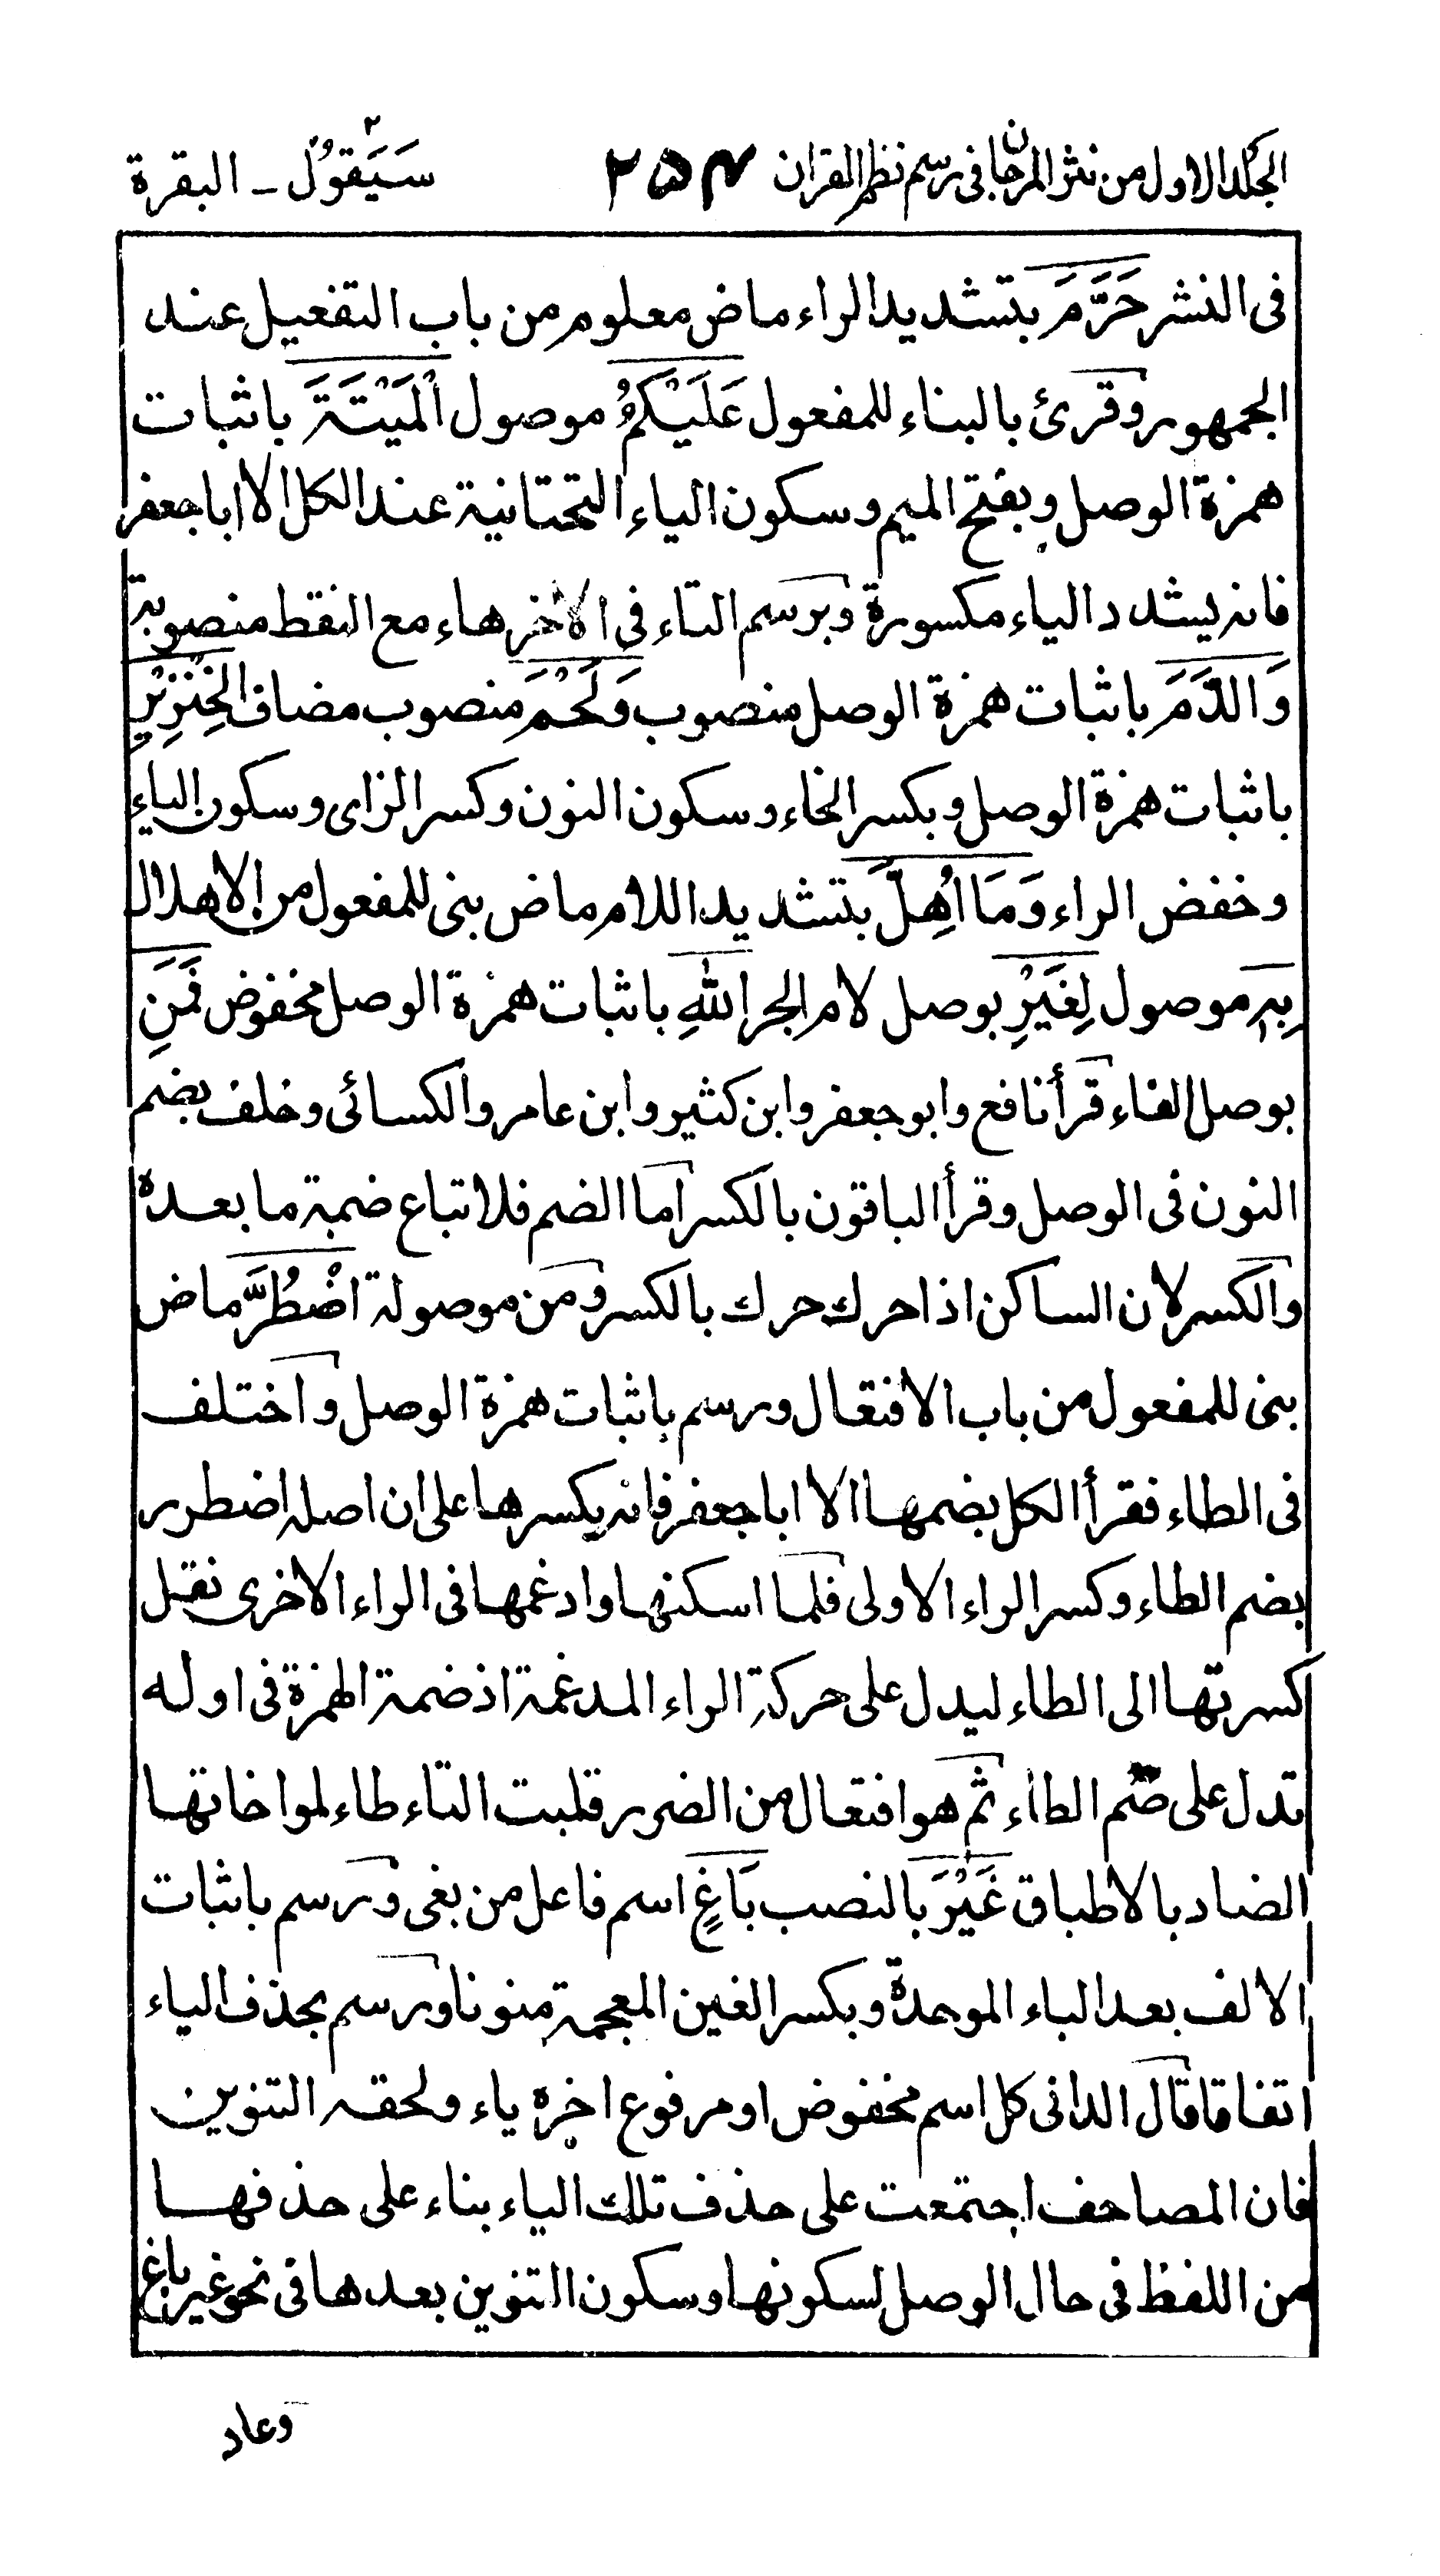 الجلد الاول من نثر المرجان فى رسم نظم القران ٢٥٤ سَيَقُوْلُ ٢ ـ البقرة
فى النشر حَرَّمَ بتشديد الراء ماض معلوم من باب التفعيل عند
الجمهور وقرئ بالبناء للمفعول عَلَيْكُمُ موصول الْمَيْتَةَ باثبات
همزة الوصل وبفتح الميم وسكون الياء التحتانية عند الكل الا ابا جعفر
فانه يشدد الياء مكسورة وبرسم التاء فى الاخر هاء مع النقط منصوبة
وَالدَّمَ باثبات همزة الوصل منصوب وَلَحْمَ منصوب مضاف الْخِنْزِيْرِ
باثبات همزة الوصل وبكسر الخاء وسكون النون وكسر الزاى وسكون الياء
وخفض الراء وَمَا اُهِلَّ بتشديد اللام ماض بنى للمفعول من الاهلال
بِهٖ موصول لِغَيْرِ بوصل لام الجر اللهِ باثبات همزة الوصل مخفوض فَمَنِ
بوصل الفاء قرأ نافع وابو جعفر وابن كثير وابن عامر والكسائى وخلف بضم
النون فى الوصل وقرأ الباقون بالكسر اما الضم فلاتباع ضمة ما بعده
والكسر لان الساكن اذا حرك حرك بالكسر ومن موصولة اضْطُرَّ ماض
بنى للمفعول من باب الافتعال ورسم باثبات همزة الوصل واختلف
فى الطاء فقرأ الكل بضمها الا ابا جعفر فانه يكسرها على ان اصله اضطرر
بضم الطاء وكسر الراء الاولى فلما اسكنها وادغمها فى الراء الاخرى نقل
كسرتها الى الطاء ليدل على حركة الراء المدغمة اذ ضمة الهمزة فى اوله
تدل على ضم الطاء ثم هو افتعال من الضرر قلبت التاء طاء لمواخاتها
الضاد بالاطباق غَيْرَ بالنصب بَاغٍ اسم فاعل من بغى ورسم باثبات
الالف بعد الباء الموحدة وبكسر الغين المعجمة منونا ورسم بحذف الياء
اتفاقا قال الدانى كل اسم مخفوض او مرفوع اخره ياء ولحقه التنوين
فان المصاحف اجتمعت على حذف تلك الياء بناء على حذفها
من اللفظ فى حال الوصل لسكونها وسكون التنوين بعدها فى نحو غير باغ
وعاد